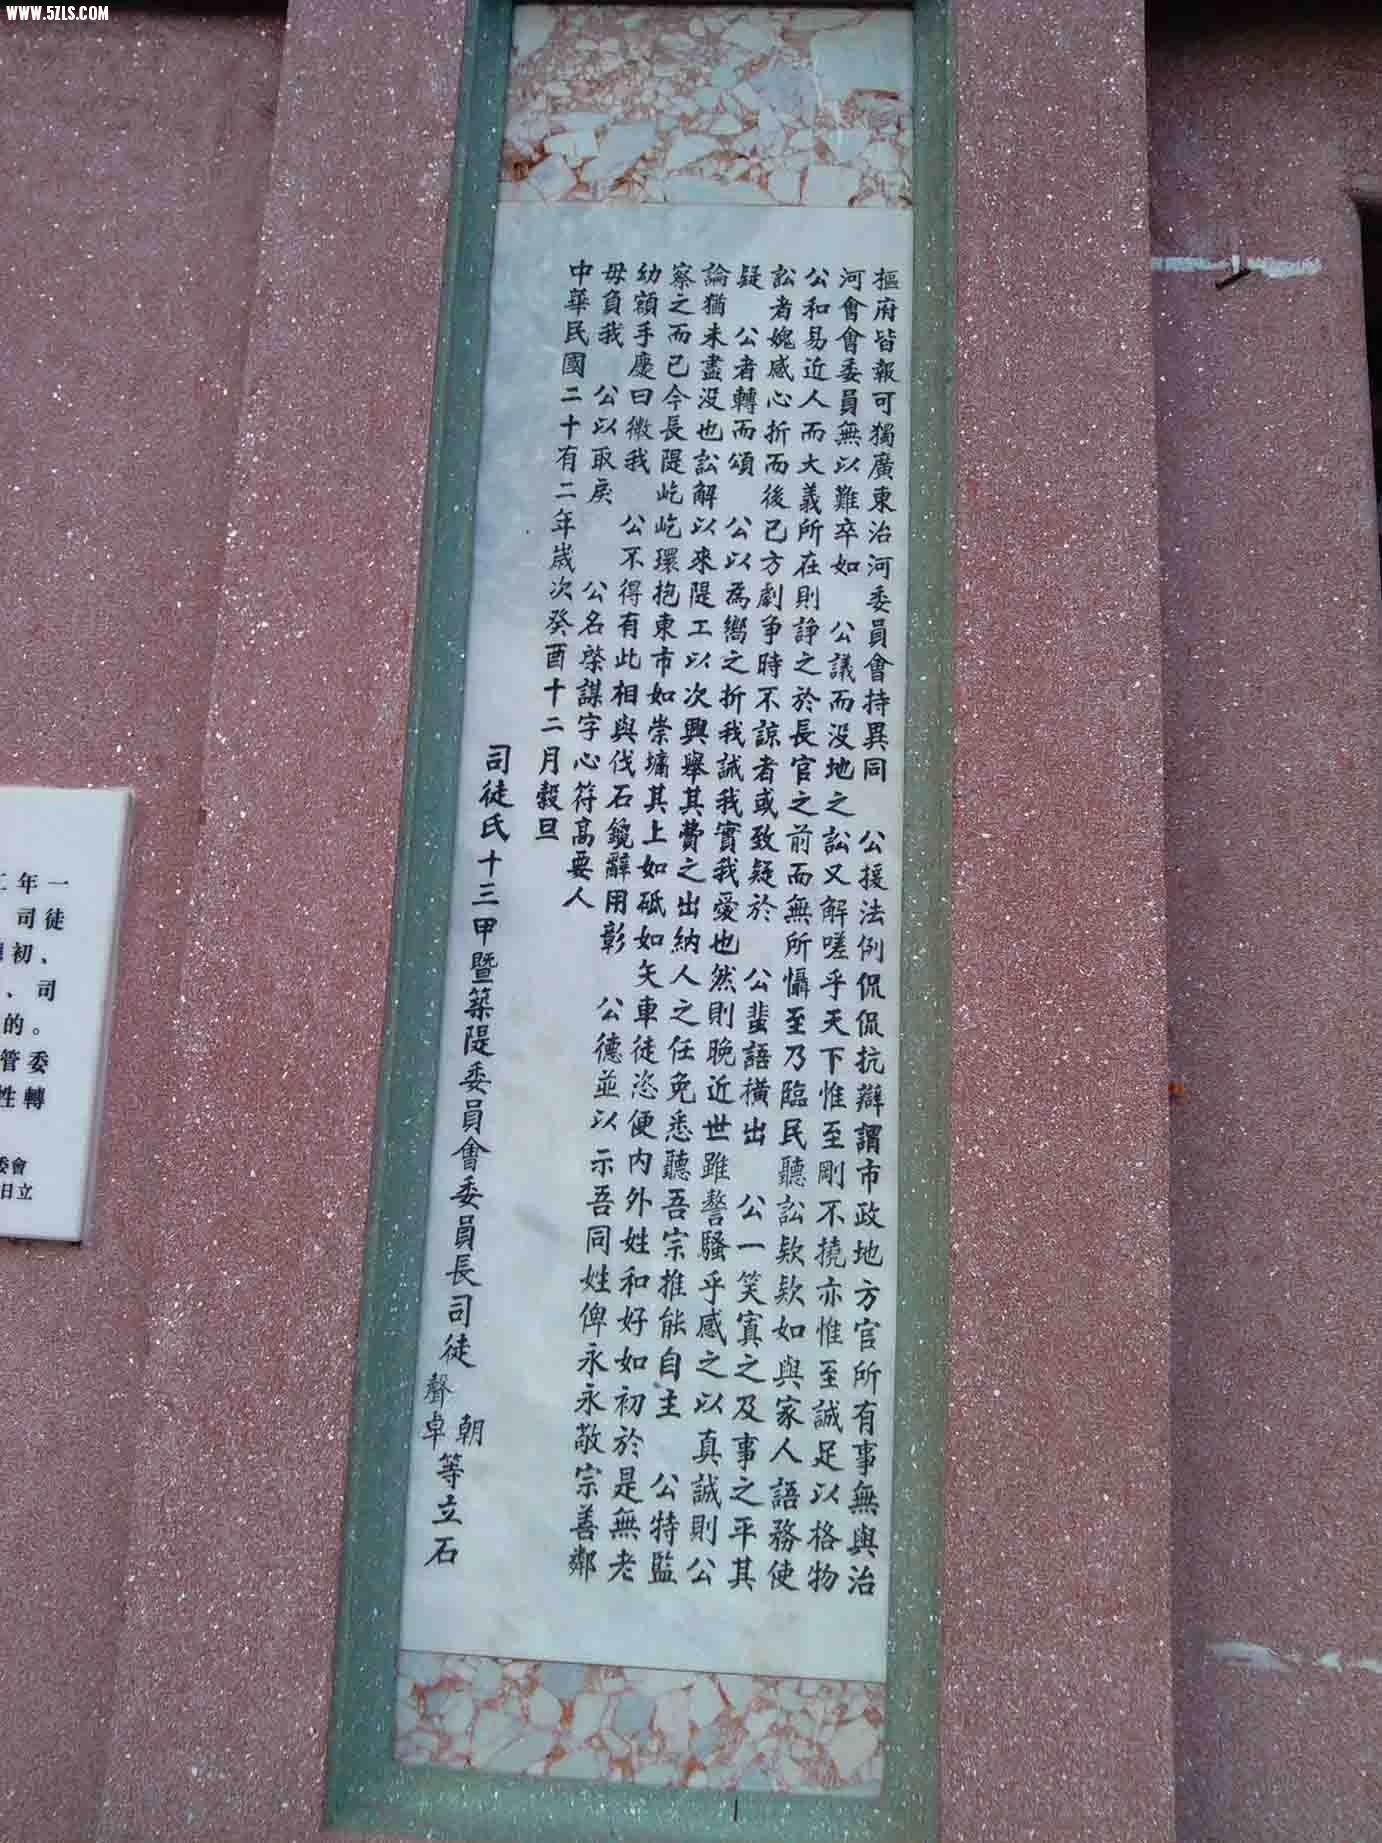 WWW.5ZLS.COM
樞府皆報可獨廣東治河委員會持異同　公援法例侃侃抗辯謂市政地方官所有事無與治
河會會委員無以難卒如　公議而没地之訟又解嗟乎天下惟至剛不撓亦惟至誠足以格物
公和易近人而大義所在則諍之於長官之前而無所懾至乃臨民聽訟欵欵如與家人語務使
訟者媿感心折而後已方劇争時不諒者或致疑於　公蜚語橫出　公一笑寘之及事之平其
疑　公者轉而頌　公以為嚮之折我誠我實我愛也然則晚近世雖謷騷乎感之以真誠則公
論猶未盡没也訟解以來隄工以次興舉其費之出納人之任免悉聽吾宗推能自主　公特監
察之而已今長隄屹屹環抱東市如崇墉其上如砥如矢車徒恣便内外姓和好如初於是無老
幼額手慶曰微我　公不得有此相與伐石鑱辭用彰　公德並以示吾同姓俾永永敬宗善鄰
毋負我　公以取戾　公名棨謀字心符高要人
中華民國二十有二年歲次癸酉十二月穀旦
司徒氏十三甲暨築隄委員會委員長司徒朝聲卓等立石
年一
司徒
初、
、司
的。
管委
性轉
委會
日立